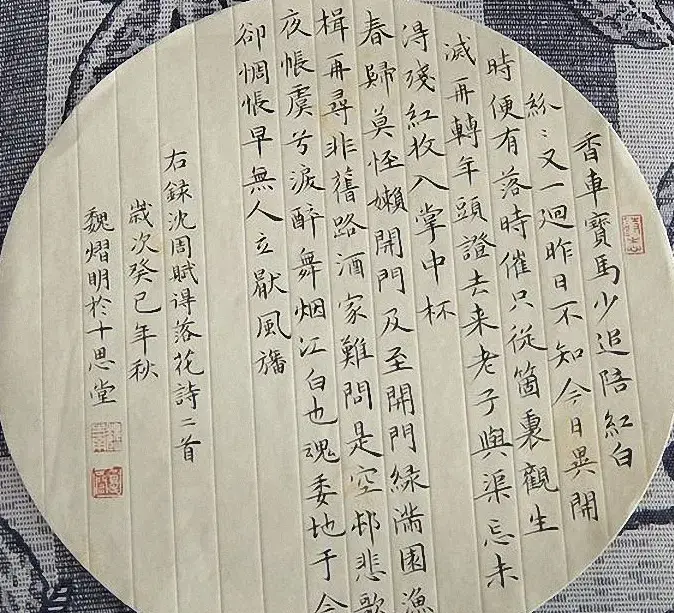 香車寶馬少追陪紅白
紛〻又一迴昨日不知今日異開
時便有落時催只從箇裏觀生
滅再轉年頭證去来老子與渠忘未
得殘紅收入掌中杯
春歸莫怪嬾開門及至開門緑滿園漁
楫再尋非舊路酒家難問是空邨悲歌
夜帳虞兮淚醉舞烟江白也魂委地于今
卻惆悵早無人立厭風旛
右録沈周賦得落花詩二首
歲次癸巳年秋
魏熠明於十思堂